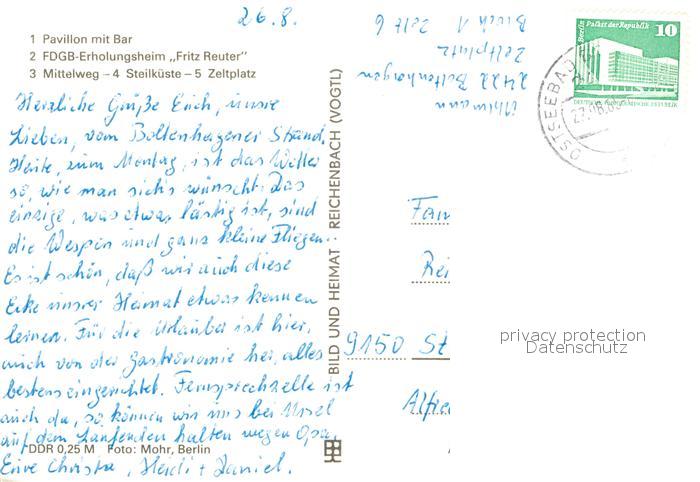 26.8.
1 Pavillon mit Bar
2 FDGB-Erholungsheim „Fritz Reuter"
3 Mittelweg – 4 Steilküste – 5 Zeltplatz
Herzliche Grüße Euch, unsre
Lieben, vom Boltenhagener Strand.
Heute, zum Montag, ist das Wetter
so, wie man sich's wünscht. Das
einzige, was etwas lästig ist, sind
die Wespen und ganz kleine Fliegen.
Es ist schön, daß wir auch diese
Ecke unsrer Heimat etwas kennen
lernen. Für die Urlauber ist hier,
auch von der Gastronomie her, alles
bestens eingerichtet. Fernsprechzelle ist
auch da, so können wir uns bei Ursel
auf dem Laufenden halten wegen Opa.
Eure Christa, Heidi + Daniel.
DDR 0,25 M Foto: Mohr, Berlin
BILD UND HEIMAT · REICHENBACH (VOGTL)
2422 Boltenhagen
Zeltplatz
Block 1 Zelt 6
Berlin Palast der Republik
10
DEUTSCHE DEMOKRATISCHE REPUBLIK
OSTSEEBAD
Fam
Rei
9150 St
Alfre
privacy protection
Datenschutz